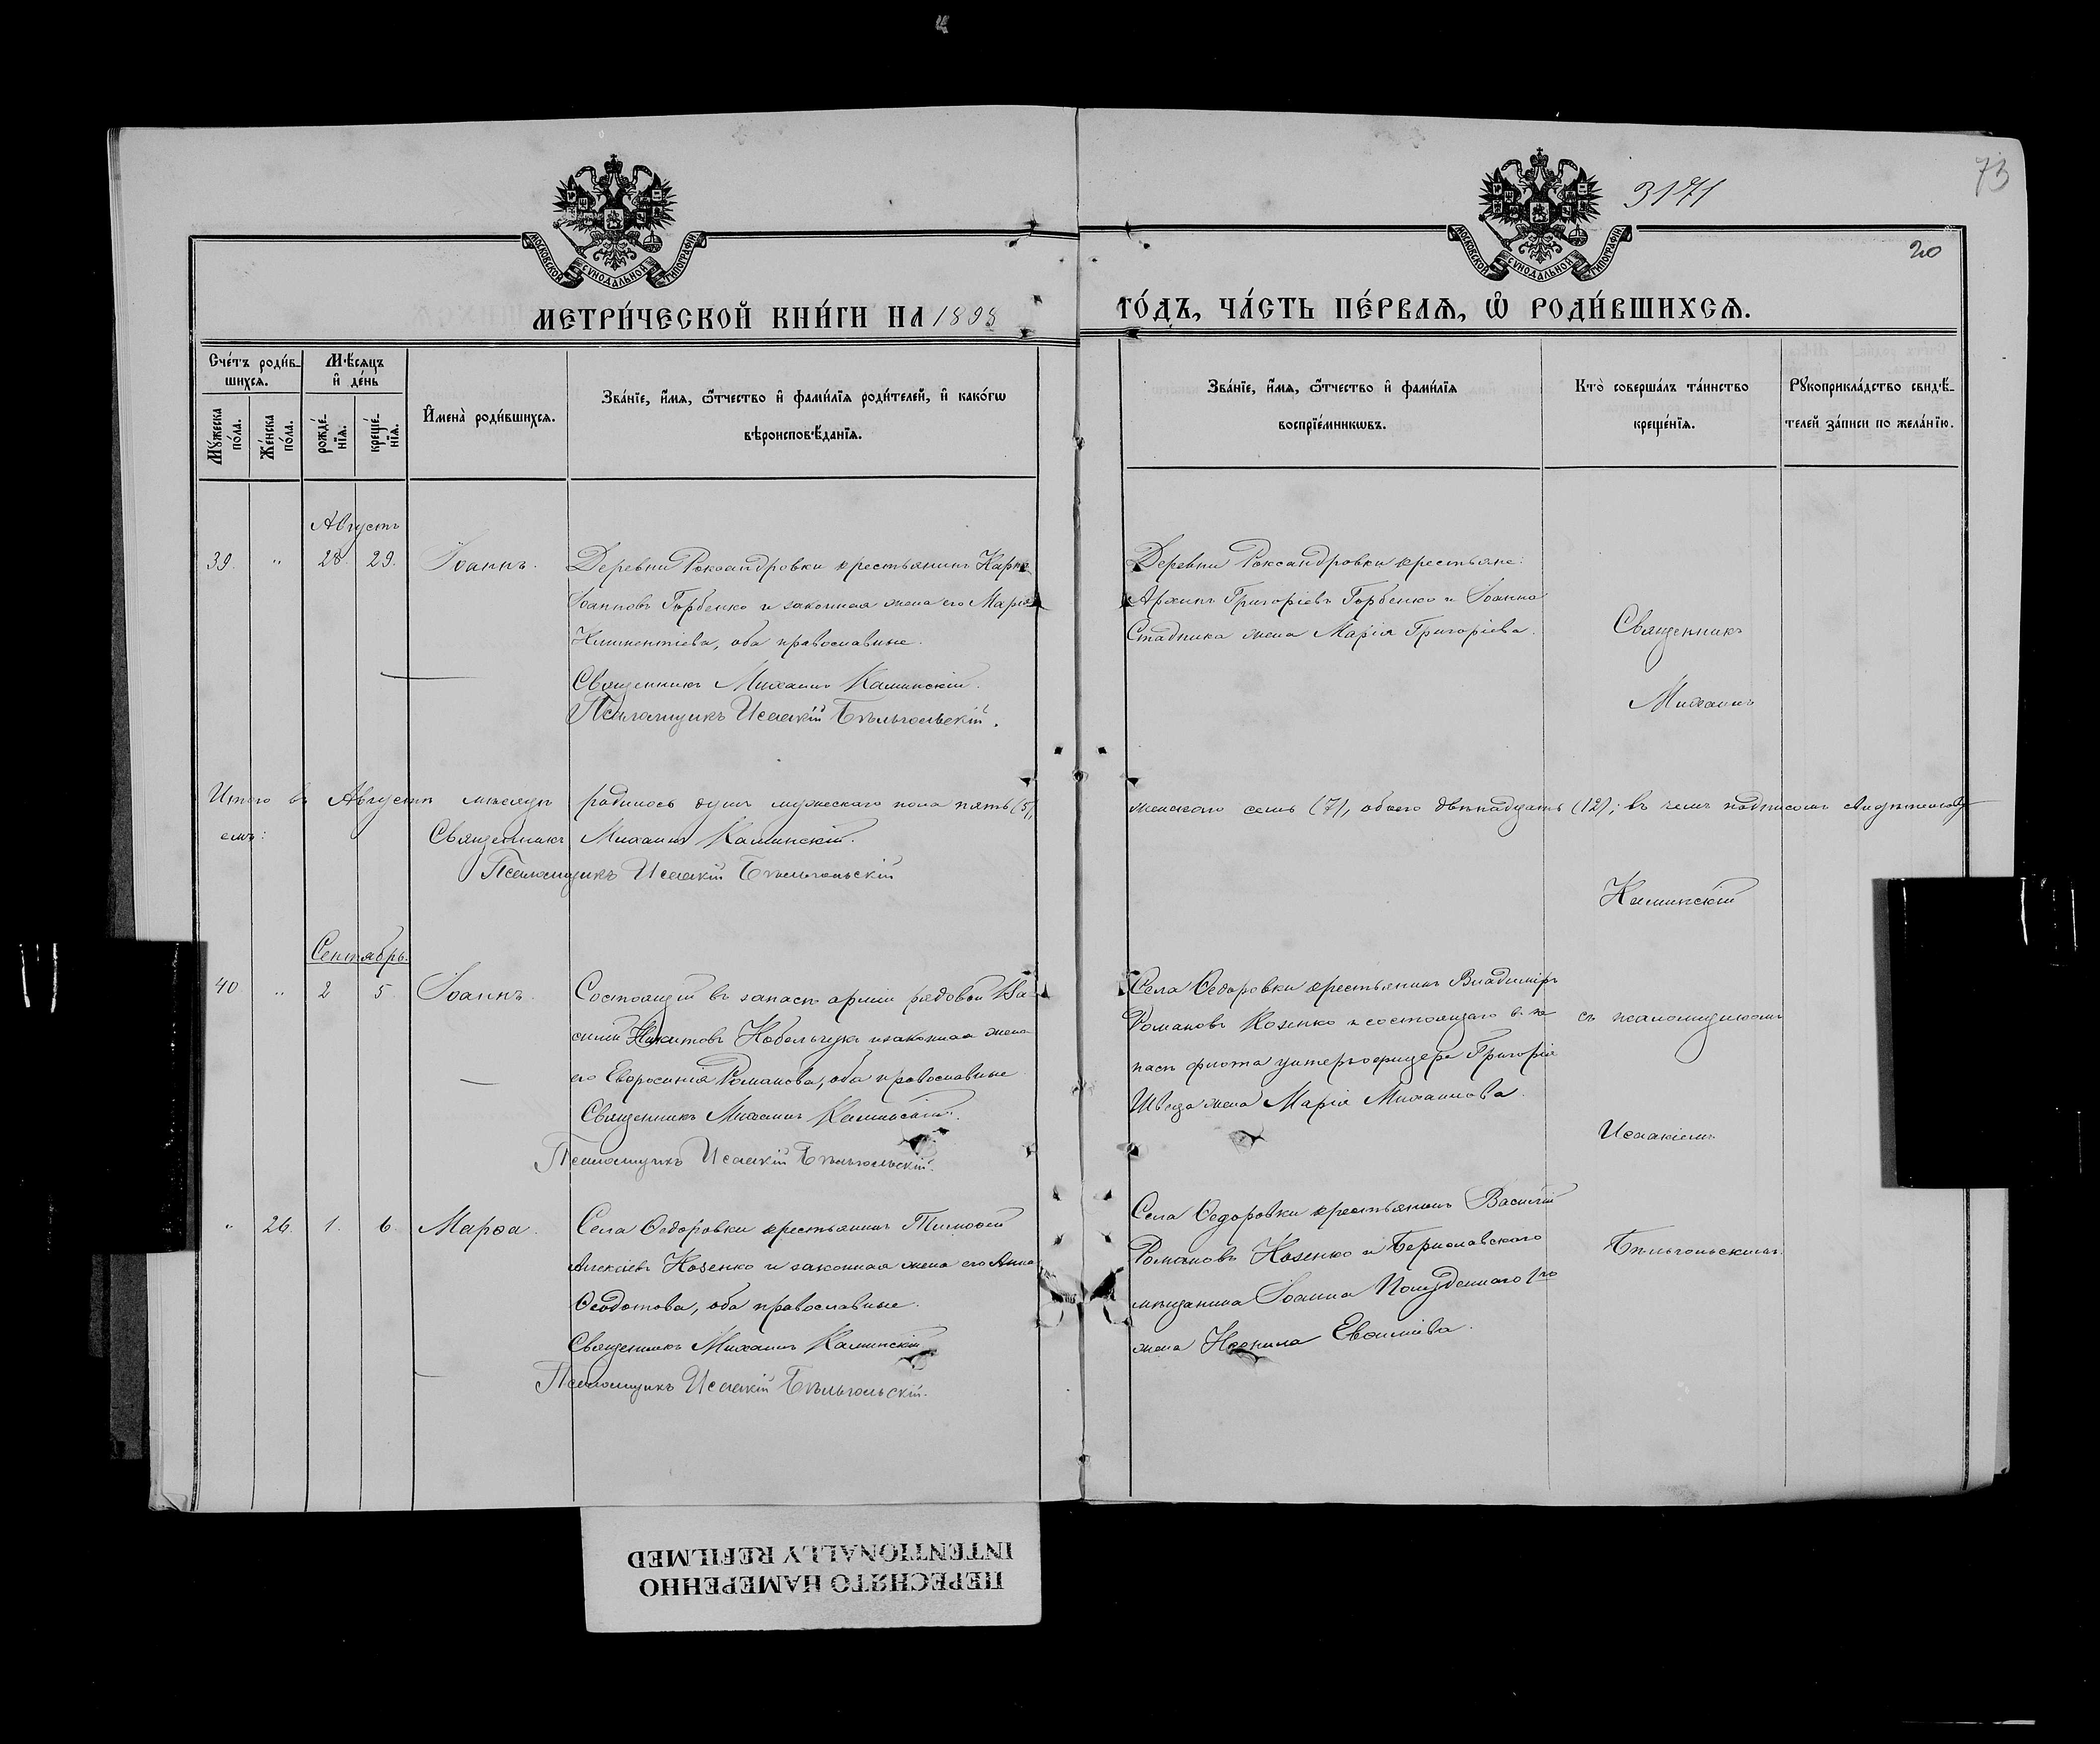 3171
73
20
МОСКОВСКОЙ СѴНОДАЛЬНОЙ ТИПОГРАФІИ
МОСКОВСКОЙ СѴНОДАЛЬНОЙ ТИПОГРАФІИ
МЕТРИ́ЧЕСКОЙ КНИ́ГИ НА 1898
ГО́ДЪ, ЧА́СТЬ ПЕ́РВАѦ, Ѽ РОДИ́ВШИХСѦ.
Сче́тъ роди́в-
шихсѧ.
Мѣ́сѧцъ
и҆ де́нь
Мꙋ́жеска
по́ла.
Же́нска
по́ла.
рожде́-
нїѧ.
креще́-
нїѧ.
И҆мена̀ роди́вшихсѧ.
Зва́нїе, и҆́мѧ, ѻ҆́тчество и҆ фами́лїѧ роди́телей, и҆ како́гѡ
вѣроисповѣ́данїѧ.
Зва́нїе, и҆́мѧ, ѻ҆́тчество и҆ фами́лїѧ
воспрїе́мникѡвъ.
Кто̀ соверша́лъ та́инство
креще́нїѧ.
Рꙋкоприкла́дство свидѣ́-
телей за́писи по жела́нїю.
Августъ
39. " 28. 29. Іоаннъ.
Деревни Роксандровки крестьянинъ Карпъ
Іоанновъ Горбенко и законная жена его Марія
Климентіева, оба православные.
Священникъ Михаилъ Калинскій.
Псаломщикъ Исаакій Бѣльгольскій.
Деревни Роксандровки крестьяне:
Архипъ Григоріевъ Горбенко и Іоанна
Стадника жена Марія Григоріева.
Священникъ
Михаилъ
Итого въ Августѣ мѣсяцѣ родилось душъ мужескаго пола пять (5),
женскаго семь (7), обоего двѣнадцать (12); въ чемъ подписомъ свидѣтельству
емъ:
Священникъ Михаилъ Калинскій.
Псаломщикъ Исаакій Бѣльгольскій
Калинскій
Сентябрь.
40 " 2 5. Іоаннъ.
Состоящій въ запасѣ арміи рядовой Ва-
силій Никитовъ Кобельчукъ и законная жена
его Евфросинія Романова, оба православные
Священникъ Михаилъ Калинскій.
Псаломщикъ Исаакій Бѣльгольскій.
Села Ѳедоровки крестьянинъ Владиміръ
Романовъ Козенко и состоящаго въ за
пасѣ флота унтеръ офицера Григорія
Швеца жена Марія Михаилова.
съ псаломщикомъ
Исаакіемъ
" 26. 1. 6 Марѳа.
Села Ѳедоровки крестьянинъ Тимоѳей
Алексіевъ Козенко и законная жена его Анна
Ѳеодотова, оба православные.
Священникъ Михаилъ Калинскій
Псаломщикъ Исаакій Бѣльгольскій.
Села Ѳедоровки крестьянинъ Василій
Романовъ Козенко и Бериславскаго
мѣщанина Іоанна
жена Неонила
Бѣльгольскимъ.
ПЕРЕСНЯТО НАМЕРЕННО
INTENTIONALLY REFILMED